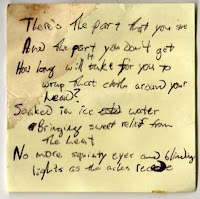 There's the part that you see
And the part you don't get
How long will it take for you to
wrap that cloth around your
head?
Soaked in ice water
Bringing sweet relief from
The heat
No more squinty eyes and blinding
lights as the aches recede